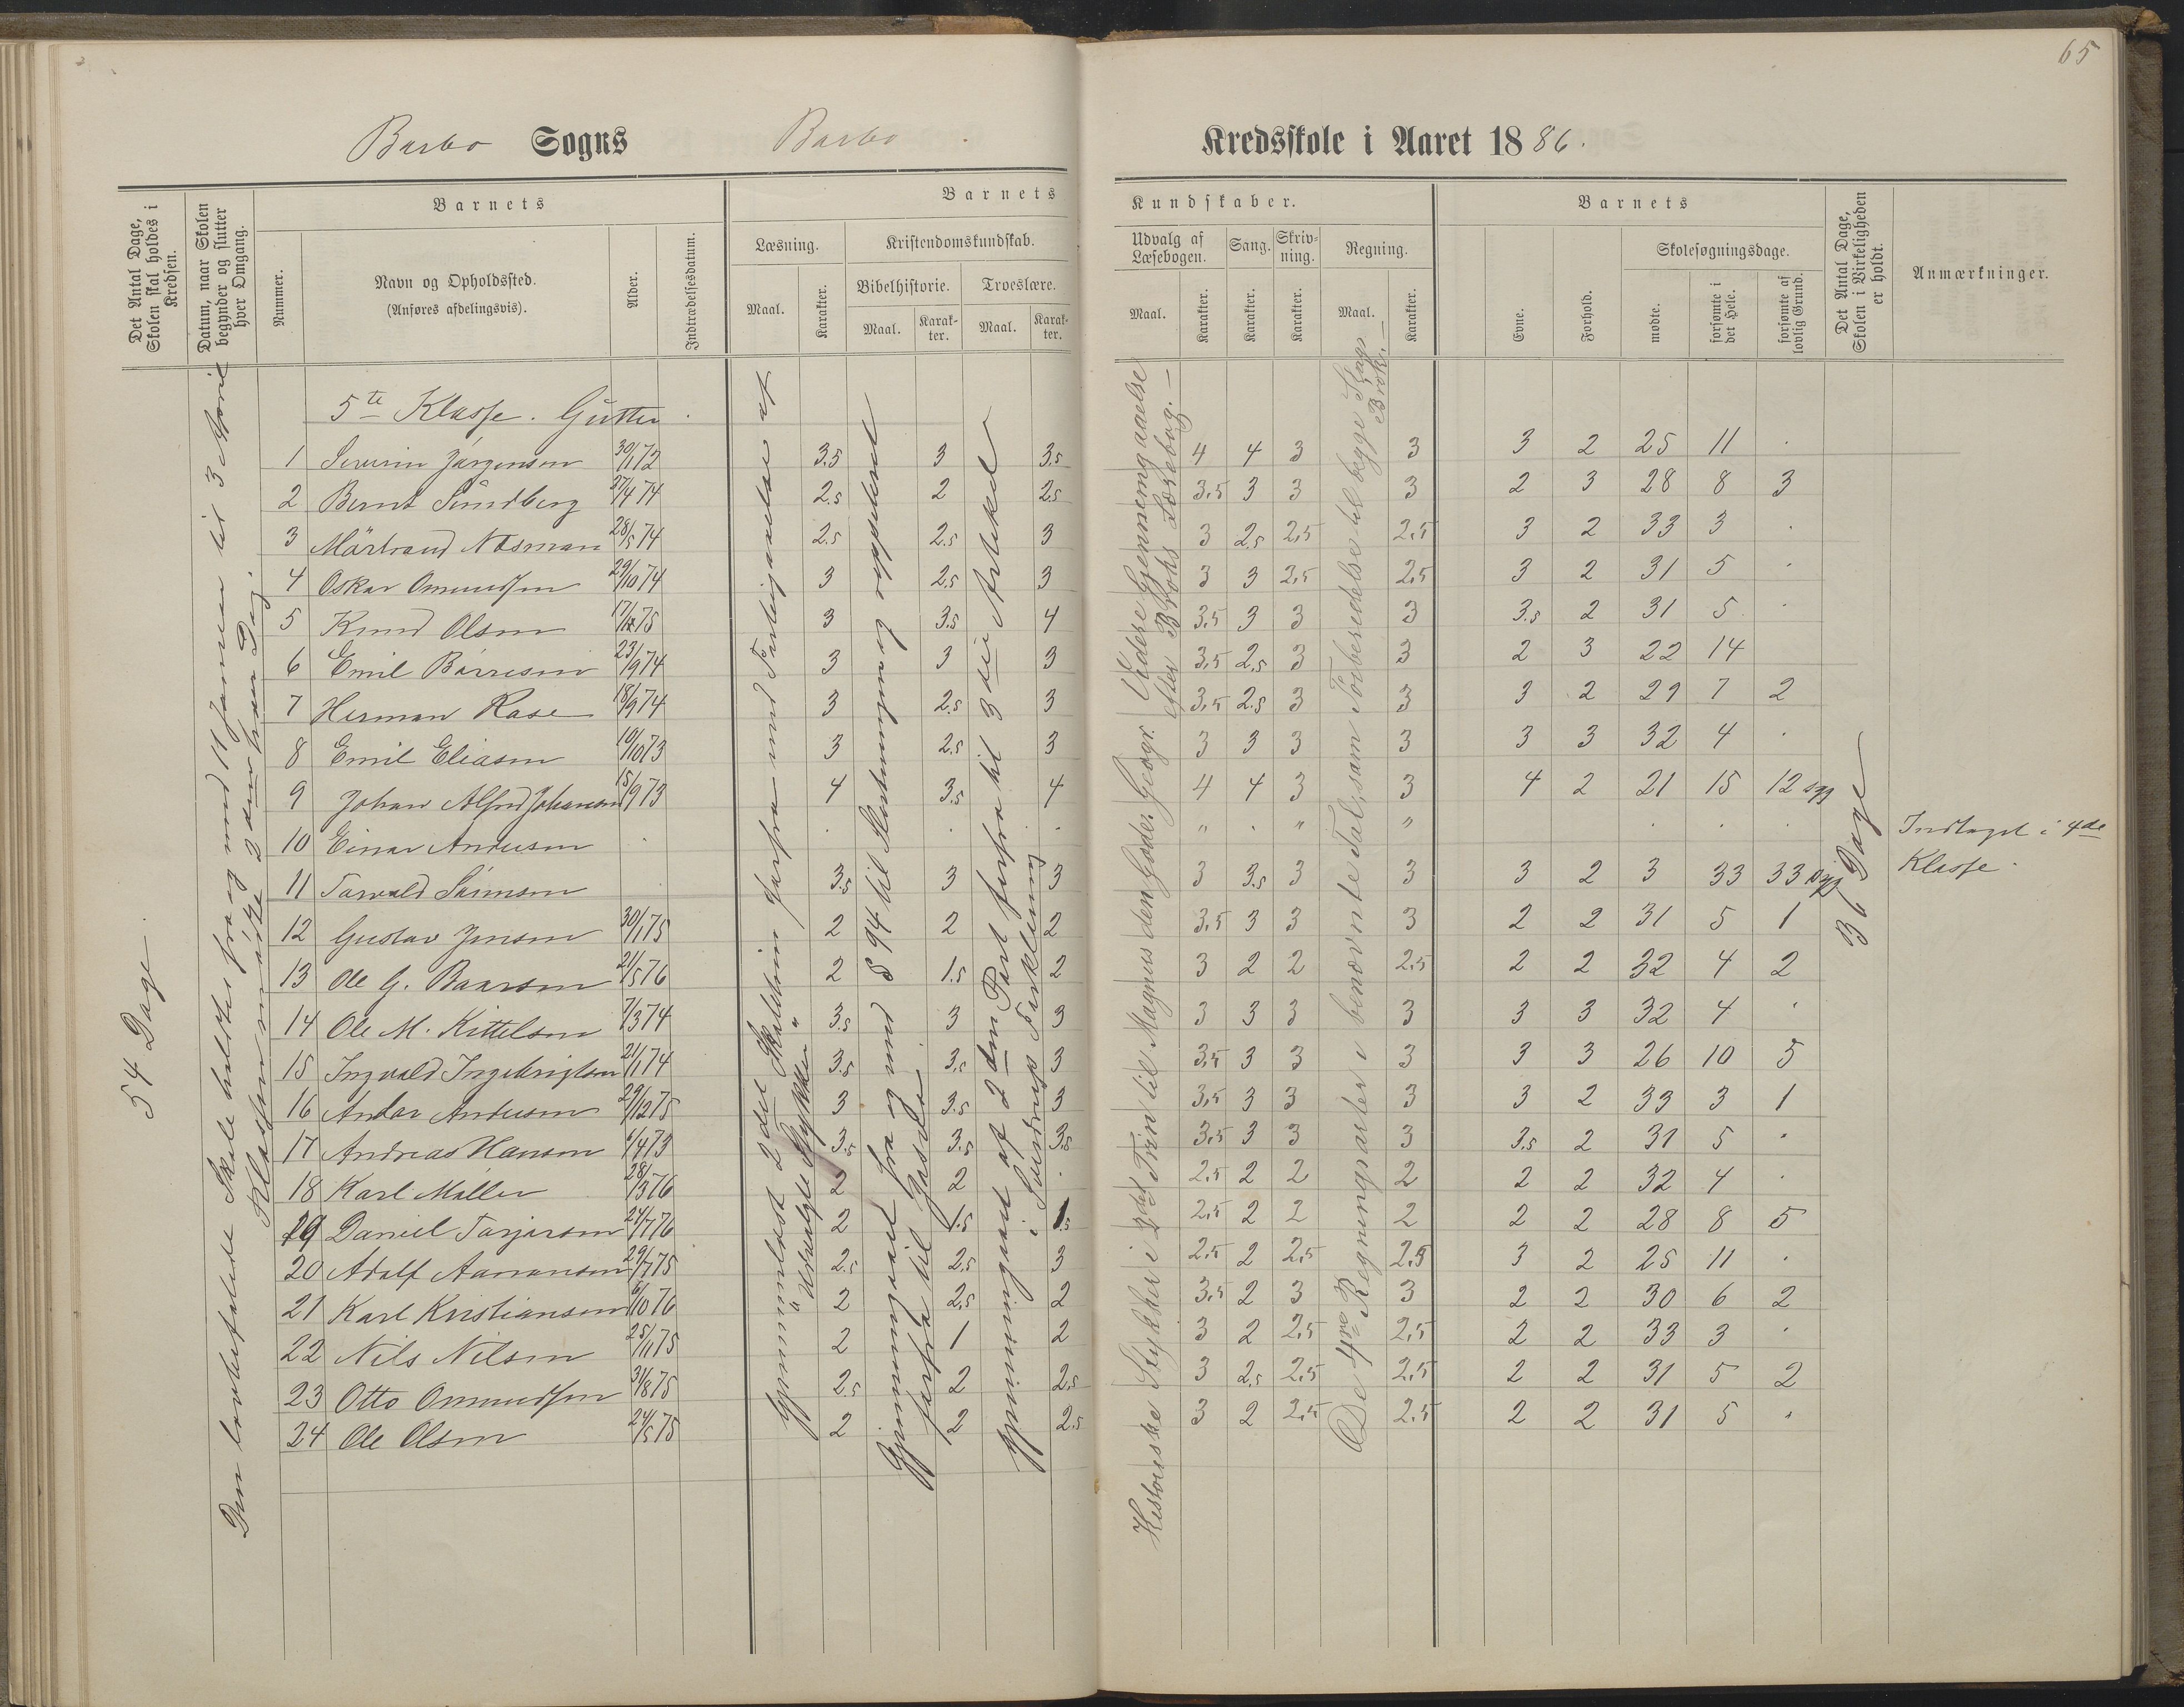 65
Barbo Sogns Barbo Kredsskole i Aaret 1886.
Det Antal Dage, Skolen skal holdes i Kredsen.
Datum, naar Skolen begynder og slutter hver Omgang.
Barnets
Nummer.
Navn og Opholdssted.
(Anføres afdelingsvis).
Alder.
Indtrædelsesdatum.
Barnets
Læsning.
Maal.
Karakter.
Kristendomskundskab.
Bibelhistorie.
Maal.
Karakter.
Troeslære.
Maal.
Karakter.
Kundskaber.
Udvalg af Læsebogen.
Maal.
Karakter.
Sang.
Karakter.
Skrivning.
Karakter.
Regning.
Maal.
Karakter.
Barnets
Evne.
Forhold.
Skolesøgningsdage.
mødte.
forsømte i det Hele.
forsømte af lovlig Grund.
Det Antal Dage, Skolen i Virkeligheden er holdt.
Anmærkninger.
54 Dage.
Den lovbefalede Skole holdtes fra og med 11 Januar til 3 April
Klassen mødte 2 den hver Dag.
5te Klasse. Gutter.
1 Severin Jørgensen 30/1 72 3.5 3 3.5 4 4 3 3 3 2 25 11 .
2 Bernt Sundberg 27/4 74 2.5 2 2.5 3,5 3 3 3 2 3 28 8 3
3 Mårtrand Nosman 28/5 74 2.5 2.5 3 3 2.5 2,5 2,5 3 2 33 3 .
4 Oskar Omundsen 29/10 74 3 2.5 3 3 3 2,5 2,5 3 2 31 5 .
5 Knud Olsen 17/12 75 3 3.5 4 3,5 3 3 3 3.5 2 31 5 .
6 Emil Børresen 23/9 74 3 3 3 3,5 2.5 3 3 2 3 22 14
7 Herman Rase 18/9 74 3 2.5 3 3,5 2.5 3 3 3 2 29 7 2
8 Emil Eliasen 10/10 73 3 2.5 3 3 3 3 3 3 3 32 4 .
9 Johan Alfred Johansen 15/9 73 4 3.5 4 4 4 3 3 4 2 21 15 12 syg
10 Einar Andersen . . . . " . " " . . Indtaget i 4de Klasse.
11 Torvald Sørensen 3.5 3 3 3 3.5 3 3 3 2 3 33 33 syg
12 Gustav Jensen 30/1 75 2 2 2 3,5 3 3 3 2 2 31 5 1
13 Ole G. Baarsen 21/5 76 2 1.5 2 3 2 2 2,5 2 2 32 4 2
14 Ole M. Kittelsen 7/3 74 3.5 3 3 3 3 3 3 3 3 32 4 .
15 Ingvald Ingebrigtsen 21/1 74 3.5 3.5 3 3,5 3 3 3 3 3 26 10 5
16 Andor Andersen 29/12 75 3 3.5 3 3,5 3 3 3 3 2 33 3 1
17 Andreas Hansen 4/4 73 3.5 3.5 3.5 3,5 3 3 3 3.5 2 31 5 .
18 Karl Møller 28/3 76 2 2 . 2,5 2 2 2 2 2 32 4 .
19 Daniel Torjersen 24/7 76 2 1.5 1.5 2,5 2 2 2 2 2 28 8 5
20 Adolf Aanonsen 29/7 75 2.5 2.5 3 2,5 2 2,5 2,5 3 2 25 11 .
21 Karl Kristiansen 6/10 76 2 2.5 2 3,5 2 3 3 2 2 30 6 2
22 Nils Nilsen 25/1 75 2 1 2 3 2 2,5 2,5 2 2 33 3 .
23 Otto Omundsen 31/8 75 2.5 2 2.5 3 2.5 2,5 2,5 2 2 31 5 2
24 Ole Olsen 24/5 75 2 2 2.5 3 2 2,5 2,5 2 2 31 5 .
Gjennemlæst 2det Skoletrin forfra med Forbigaaelse af
" Udvalgte Stykker "
Gjennemgaaet fra og med § 94 til Slutningen og repeteret
forfra til
Gjennemgaaet af 2den Part forfra til 3die Artikel
i Sverdrups Forklaring
Historiske Stykker i 2det Trin til Magnus den Gode. Geogr. Videre Gjennemgaaelse
efter Broks Lærebog. —
De 4re Regningsarter i benævnte Tal, sam Forberedelse til begge Slags
Brøk. —
36 Dage